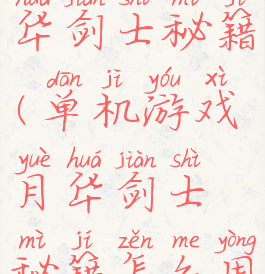 huá jiàn shì mì jí
华剑士秘籍
dān jī yóu xì
(单机游戏
yuè huá jiàn shì
月华剑士
mì jí zěn me yòng
秘籍怎么用